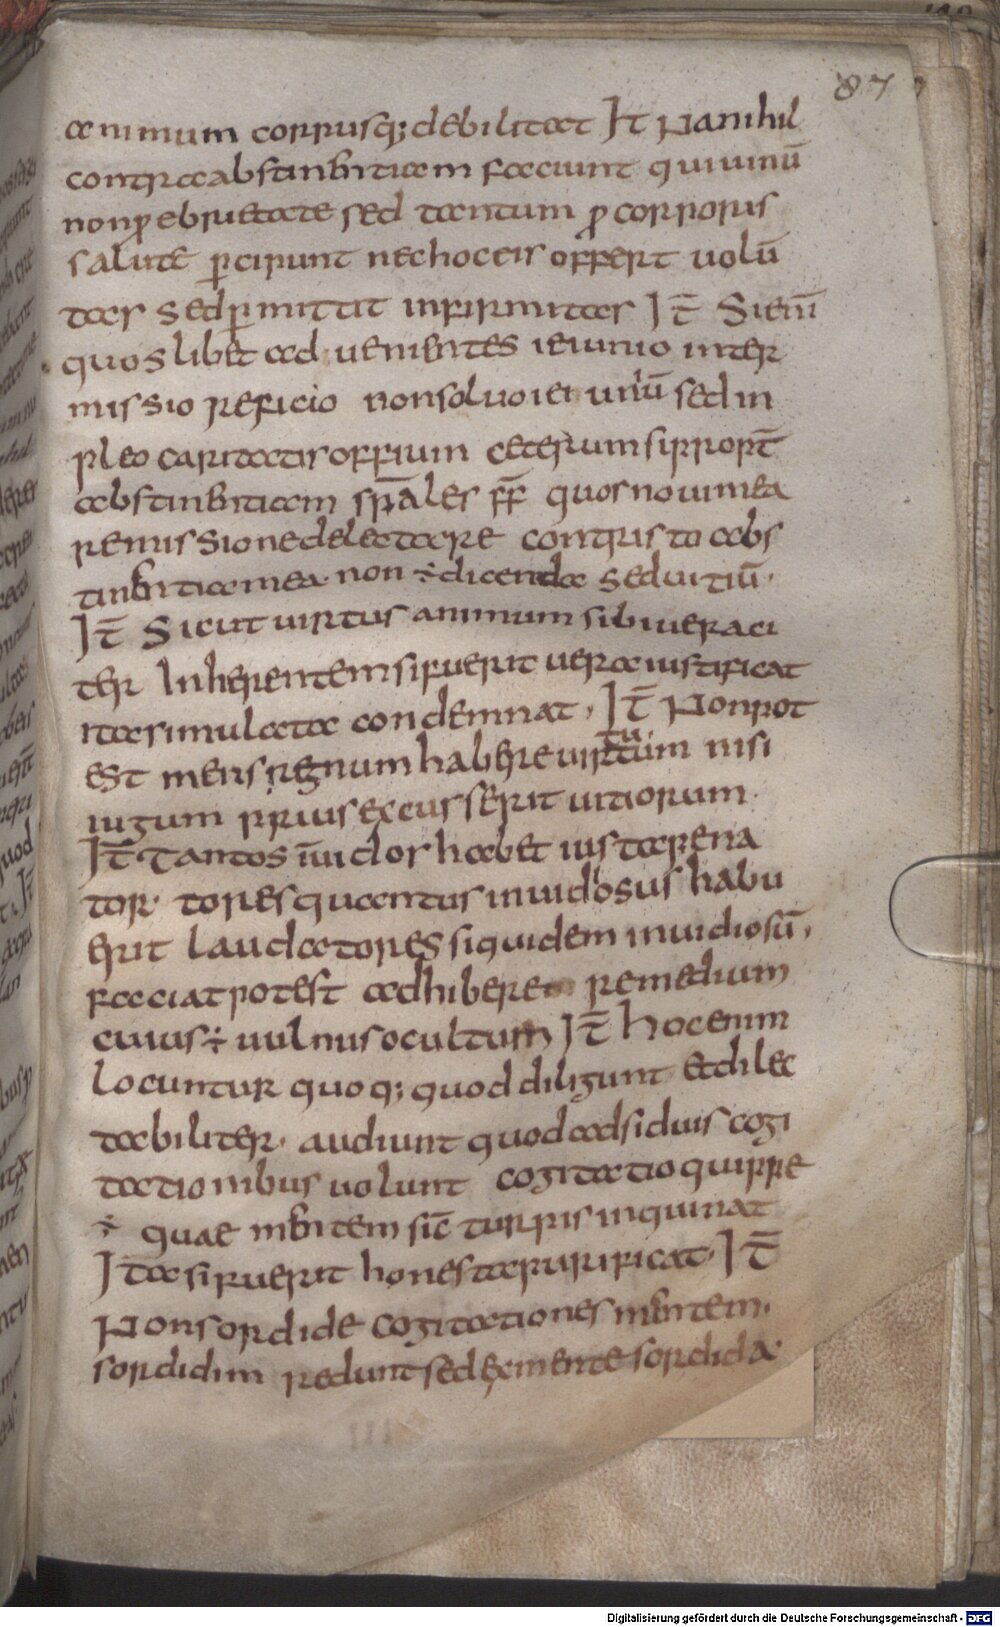 87
animum corpusq; debilitat It Nanihil
contraabstinentiam faciunt quiuinū
nonꝓebrietate sed tantum ꝓcorporis
salutē ꝑcipiunt nechoceis offert uolū
tas sedꝑmittit infirmitas IT̄ Sienī
quoslibet aduenientes ieiunio inter
missio reficio nonsoluoieiuniū sedin
pleo caritatisoffium ceterumsipropt̄
abstinentiam spāles fr̄ quosnouimea
remissionedelectare contristo abs
tinentiamea non ÷dicenda seduitiū.
IT̄ Sicut uirtus animum sibiueraci
ter Inherentemsifuerit ueraiustificat
itasimulata condemnat. IT̄ Nonpot
est mens regnum habereuirtutum nisi
iugum priusexcusserit uitiorum.
IT̄ Tantos īuidos habet iustaepena
tor. toresquantus inuidiosus habu
erit laudatoressiquidem inuidiosū.
faciatpotest adhibere remedium
cuius÷ uulnusocultum IT̄ hocenim
locuntur quoq; quoddiligunt Etdilec
tabiliter. audiunt quodadsiduis cogi
tationibus uolunt cogitatioquippe
÷ quae mentem siē turpisinquinat
Itasifuerit honestapurificat. IT̄
Nonsordide cogitationesmentem.
sordidim redunt sedexmentesordida
Digitalisierung gefördert durch die Deutsche Forschungsgemeinschaft - DFG